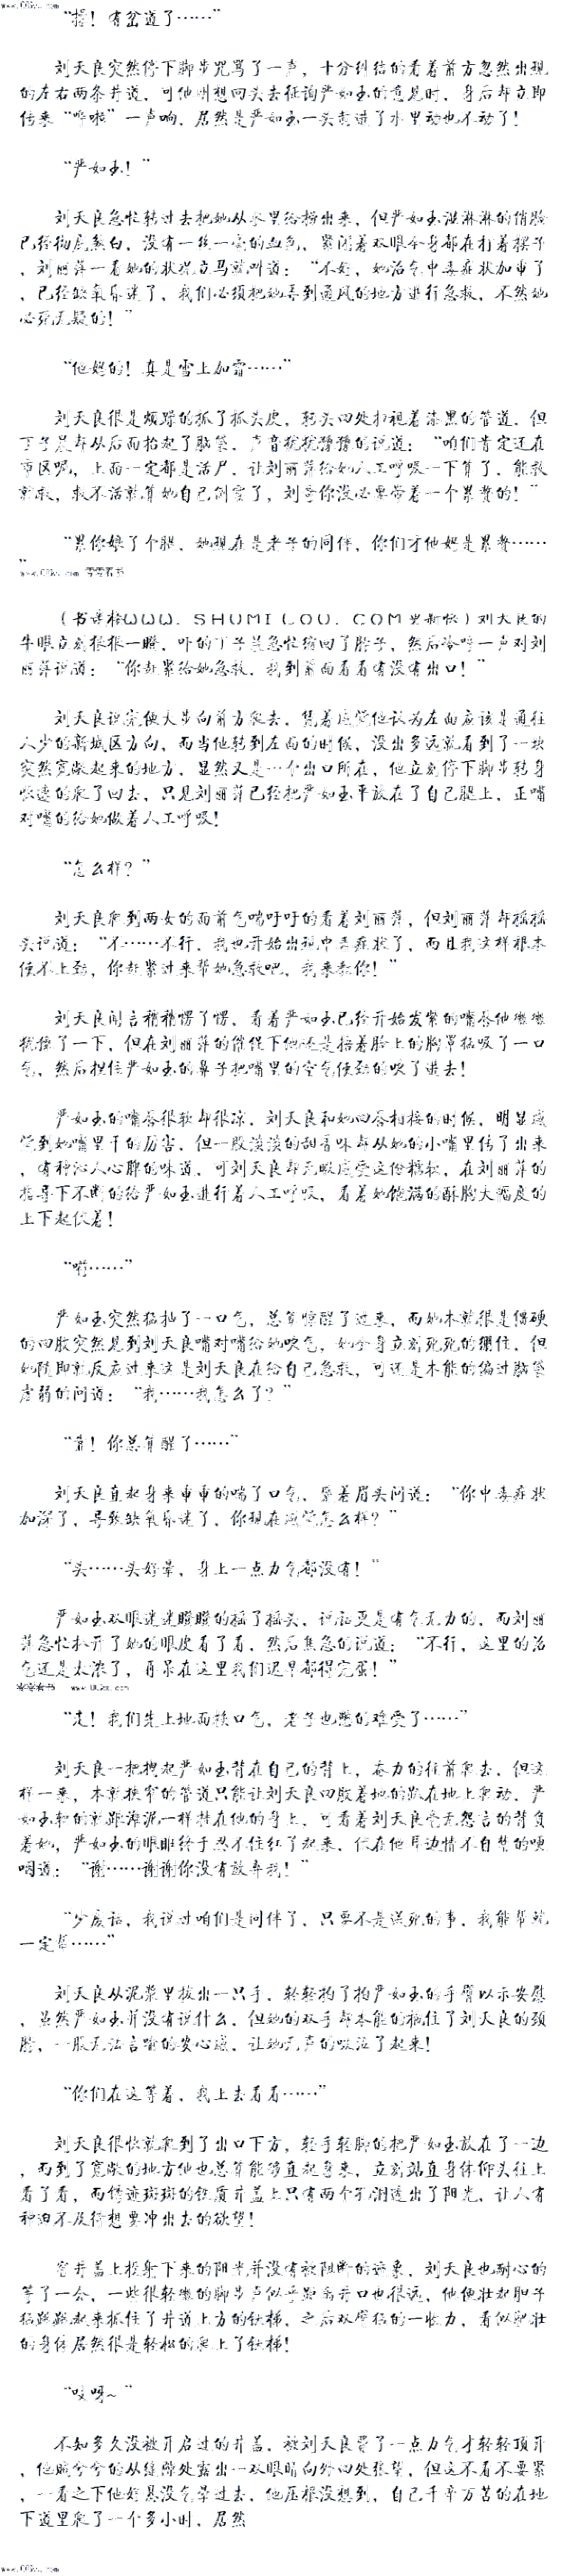 “操！有岔道了……”
刘天良突然停下脚步咒骂了一声，十分纠结的看着前方忽然出现
的左右两条井道，可他刚想回头去征询严如玉的意见时，身后却立即
传来“哗啦”一声响，居然是严如玉一头栽进了水里动也不动了！
“严如玉！”
刘天良急忙转过去把她从水里给捞出来，但严如玉湿淋淋的俏脸
已经彻底煞白，没有一丝一毫的血色，紧闭着双眼全身都在打着摆子
，刘丽萍一看她的状况立马就叫道：“不好，她沼气中毒症状加重了
，已经缺氧昏迷了，我们必须把她弄到通风的地方进行急救，不然她
必死无疑的！”
“他妈的！真是雪上加霜……”
刘天良很是烦躁的抓了抓头皮，转头四处扫视着漆黑的管道，但
丁子晨却从后面抬起了脑袋，声音犹犹豫豫的说道：“咱们肯定还在
市区呢，上面一定都是活尸，让刘丽萍给她人工呼吸一下算了，能救
就救，救不活就算她自己倒霉了，刘哥你没必要带着一个累赘的！”
“累你娘了个腿，她现在是老子的同伴，你们才他妈是累赘……
”
（书迷楼WWW．SHUMILOU．COM更新快）刘天良的
牛眼立刻狠狠一瞪，吓的丁子晨急忙缩回了脖子，然后冷哼一声对刘
丽萍说道：“你赶紧给她急救，我到前面看看有没有出口！”
刘天良说完便大步向前方爬去，凭着感觉他认为左面应该是通往
人少的新城区方向，而当他转到左面的时候，没出多远就看到了一块
突然宽敞起来的地方，显然又是一个出口所在，他立刻停下脚步转身
快速的爬了回去，只见刘丽萍已经把严如玉平放在了自己腿上，正嘴
对嘴的给她做着人工呼吸！
“怎么样？”
刘天良爬到两女的面前气喘吁吁的看着刘丽萍，但刘丽萍却摇摇
头说道：“不……不行，我也开始出现中毒症状了，而且我这样根本
使不上劲，你赶紧过来帮她急救吧，我来教你！”
刘天良闻言稍稍愣了愣，看着严如玉已经开始发紫的嘴唇他微微
犹豫了一下，但在刘丽萍的催促下他还是捂着脸上的胸罩猛吸了一口
气，然后捏住严如玉的鼻子把嘴里的空气使劲的吹了进去！
严如玉的嘴唇很软却很凉，刘天良和她四唇相接的时候，明显感
觉到她嘴里干的厉害，但一股淡淡的甜香味却从她的小嘴里传了出来
，有种沁人心脾的味道，可刘天良却无暇感受这份旖旎，在刘丽萍的
指导下不断的给严如玉进行着人工呼吸，看着她饱满的酥胸大幅度的
上下起伏着！
“嗬……”
严如玉突然猛抽了一口气，总算惊醒了过来，而她本就很是僵硬
的四肢突然见到刘天良嘴对嘴给她吹气，她全身立刻死死的绷住，但
她随即就反应过来这是刘天良在给自己急救，可还是本能的偏过脑袋
虚弱的问道：“我……我怎么了？”
“靠！你总算醒了……”
刘天良直起身来重重的喘了口气，皱着眉头问道：“你中毒症状
加深了，导致缺氧昏迷了，你现在感觉怎么样？”
“头……头好晕，身上一点力气都没有！”
严如玉双眼迷迷瞪瞪的摇了摇头，说话更是有气无力的，而刘丽
萍急忙扒开了她的眼皮看了看，然后焦急的说道：“不行，这里的沼
气还是太浓了，再呆在这里我们迟早都得完蛋！”
“走！我们先上地面换口气，老子也憋的难受了……”
刘天良一把拽起严如玉背在自己的背上，奋力的往前爬去，但这
样一来，本就狭窄的管道只能让刘天良四肢着地的趴在地上爬动，严
如玉软的就跟滩泥一样挂在他的身上，可看着刘天良毫无怨言的背负
着她，严如玉的眼眶终于忍不住红了起来，伏在他耳边情不自禁的哽
咽道：“谢……谢谢你没有放弃我！”
“少废话，我说过咱们是同伴了，只要不是送死的事，我能帮就
一定帮……”
刘天良从泥浆里拔出一只手，轻轻拍了拍严如玉的手臂以示安慰
，虽然严如玉并没有说什么，但她的双手却本能的搂住了刘天良的颈
脖，一股无法言喻的安心感，让她无声的啜泣了起来！
“你们在这等着，我上去看看……”
刘天良很快就爬到了出口下方，轻手轻脚的把严如玉放在了一边
，而到了宽敞的地方他也总算能够直起身来，立刻站直身体仰头往上
看了看，而锈迹斑斑的铁质井盖上只有两个孔洞透出了阳光，让人有
种迫不及待想要冲出去的欲望！
窨井盖上投射下来的阳光并没有被阻断的迹象，刘天良也耐心的
等了一会，一些很轻微的脚步声似乎距离井口也很远，他便壮起胆子
猛跳跳起来抓住了井道上方的铁梯，之后双臂猛的一收力，看似肥壮
的身体居然很是轻松的爬上了铁梯！
“吱呀~”
不知多久没被开启过的井盖，被刘天良费了一点力气才轻轻顶开
，他贼兮兮的从缝隙处露出一双眼睛向外四处张望，但这不看不要紧
，一看之下他好悬没气晕过去，他压根没想到，自己千辛万苦的在地
下道里爬了一个多小时，居然